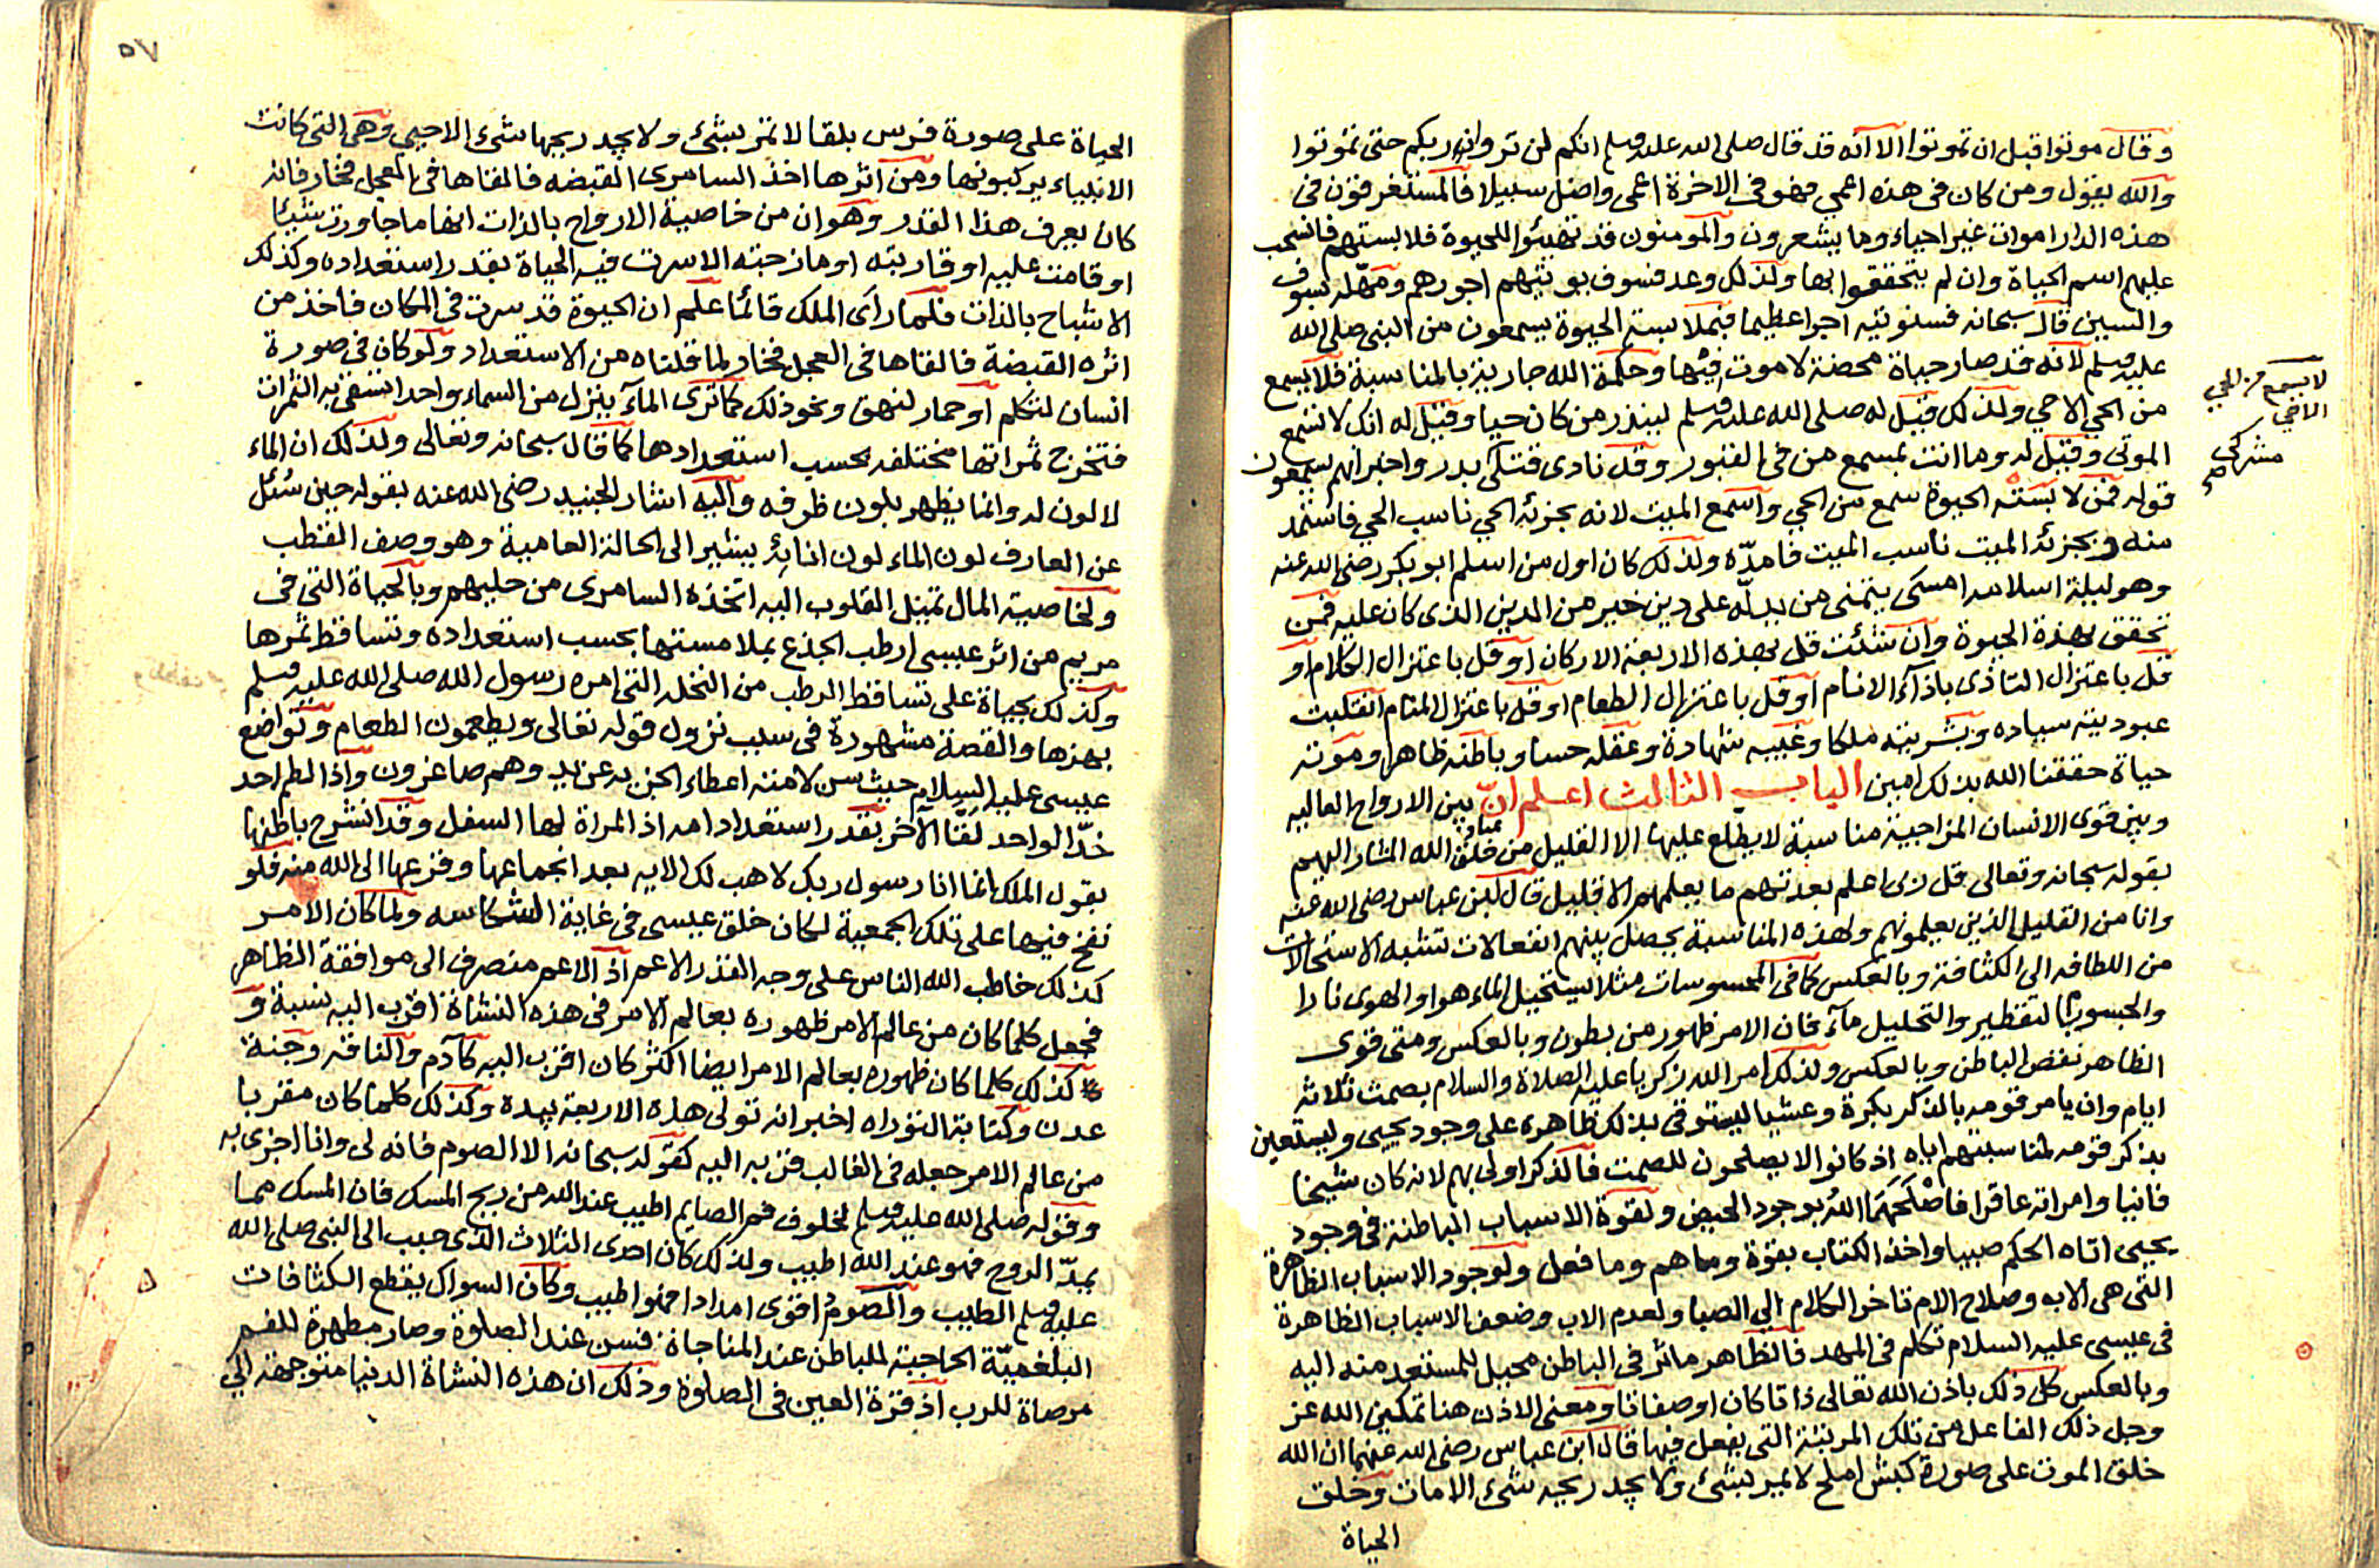 وقال موتوا قبل ان تموتوا الا انه قد قال صلى الله عليه وسلم انكم لن تروا ربكم حتى تموتوا
والله يقول ومن كان فى هذه اعمى فهو فى الاخرة اعمى واضل سبيلا فالمستغرقون فى
هذه الدار اموات غير احياء وما يشعرون والمومنون قد تهيئوا للحيوة فلابستهم فانسحب
عليهم اسم الحياة وان لم يتحققوا بها ولذلك وعد فسوف يوتيهم اجورهم ومهله بسوف
والسين قال سبحانه فسنوتيه اجرا عظيما فبملابسة الحيوة يسمعون من النبى صلى الله
عليه وسلم لانه قد صار حياة محضة لا موت فيها وحكمة الله جارية بالمناسبة فلا يسمع
من الحي الا حي ولذلك قيل له صلى الله عليه وسلم لينذر من كان حيا وقيل له انك لا تسمع
الموتى وقيل له وما انت بمسمع من فى القبور وقد نادى قتلى بدر واخبر انهم يسمعون
قوله فمن لابسته الحيوة سمع من الحي واسمع الميت لانه بجزئه الحي ناسب الحي فاستمد
منه وبجزئه الميت ناسب الميت فامده ولذلك كان اول من اسلم ابو بكر رضى الله عنه
وهو ليلة اسلامه امسى يتمنى من يدله على دين خير من الدين الذى كان عليه فمن
تحقق بهذه الحيوة وان شئت قل بهذه الاربعة الاركان او قل باعتزال الكلام او
قل باعتزال التاذى باذآء الانام او قل باعتزال الطعام او قل باعتزال المنام انقلبت
عبوديته سياده وبشريته ملكا وغيبه شهادة وعقله حسا وباطنه ظاهرا وموته
حياة حققنا الله بذلك امين الباب الثالث اعلم ان بين الارواح العاليه
وبين قوى الانسان المزاجية مناسبة لا يطلع عليها الا القليل من خلق الله المشار اليهم
بقوله سبحانه وتعالى قل ربى اعلم بعدتهم ما يعلمهم الا قليل قال ابن عباس رضى الله عنه
وانا من القليل الذين يعلمونهم ولهذه المناسبة يحصل بينهم انفعالات تشبه الاستحالات
من اللطافه الى الكثافة وبالعكس كما فى المحسوسات مثلا يستحيل الماء هوا والهوى نارا
والحبسور بالتقطير والتحليل مآء فان الامر ظهور من بطون وبالعكس ومتى قوى
الظاهر نقض الباطن وبالعكس ولذلك امر الله زكريا عليه الصلاة والسلام بصمت ثلاثة
ايام وان يامر قومه بالذكر بكرة وعشيا ليستوفى بذلك ظاهره على وجود يحيى وليستعين
بذكر قومه لمناسبتهم اياه اذ كانوا لا يصلحون للصمت فالذكر اولى بهم لانه كان شيخا
فانيا وامراته عاقرا فاضحكهما الله بوجود الحيض ولقوة الاسباب الباطنة فى وجود
يحيى اتاه الحكم صبيا واخذ الكتاب بقوة وما هم وما فعل ولوجود الاسباب الظاهرة
التى هى الابه وصلاح الام تاخر الكلام الى الصبا ولعدم الاب وضعف الاسباب الظاهرة
فى عيسى عليه السلام تكلم فى المهد فالظاهر ماثر فى الباطن محيل للمستعد منه اليه
وبالعكس كل ذلك باذن الله تعالى ذاتا كان او صفاتا ومعنى الاذن هنا تمكين الله عز
وجل ذلك الفاعل من تلك المرتبة التى يفعل فيها قال ابن عباس رضى الله عنهما ان الله
خلق الموت على صورة كبش املح لا يمر بشئ ولا يجد ريحه شئ الا مات وخلق
الحياة
لا يسمع من الحي
الا حي
مشركى
صح
٥٧
الحياة على صورة فرس بلقا لا تمر بشئ ولا يجد ريحها شئ الا حيى وهى التى كانت
الانبياء يركبونها ومن اثرها اخذ السامرى القبضه فالقاها فى العجل فخار فانه
كان يعرف هذا القدر وهو ان من خاصية الارواح بالذات انها ما جاورت شيئا
او قامت عليه او قاربته او مازحته الا سرت فيه الحياة بقدر استعداده وكذلك
الاشباح بالذات فلما راى الملك قائما علم ان الحيوة قد سرت فى المكان فاخذ من
اثره القبضة فالقاها فى العجل فخار لما قلناه من الاستعداد ولو كان فى صورة
انسان لتكلم او حمار لنهق ونحو ذلك كما ترى المآء ينزل من السماء واحدا تسقى به الثمرات
فتخرج ثمراتها مختلفه بحسب استعدادها كما قال سبحانه وتعالى ولذلك ان الماء
لا لون له وانما يظهر بلون ظرفه واليه اشار الجنيد رضى الله عنه بقوله حين سئل
عن العارف لون الماء لون انائه يشير الى الحالة العامية وهو وصف القطب
ولخاصية المال تميل القلوب اليه اتخذه السامرى من حليهم وبالحياة التى فى
مريم من اثر عيسى ارطب الجذع بملامستها بحسب استعداده وتساقط ثمرها
وكذلك بحياة على تساقط الرطب من النخلة التى امره رسول الله صلى الله عليه وسلم
بهزها والقصة مشهورة فى سبب نزول قوله تعالى ويطعمون الطعام وتواضع
عيسى عليه السلام حيث سن لامته اعطاء الجزية عن يد وهم صاغرون واذا لطم احد
خد الواحد لقا الاخر بقدر استعداد امه اذ المراة لها السفل وقد انشرح باطنها
بقول الملك انما انا رسول ربك لاهب لك الايه بعد انجماعها وفزعها الى الله منه فلو
نفخ فيها على تلك الجمعية لكان خلق عيسى فى غاية الشكاسه ولما كان الامر
كذلك خاطب الله الناس على وجه القدر الاعم اذ الاعم منصرف الى موافقة الظاهر
فجعل كلما كان من عالم الامر ظهوره بعالم الامر فى هذه النشاة اقرب اليه نسبة و
كذلك كلما كان ظهوره بعالم الامر ايضا اكثر كان اقرب اليه كآدم والناقه وجنة
عدن وكتابة التوراه اخبر انه تولى هذه الاربعة بيده وكذلك كلما كان مقربا
من عالم الامر جعله فى الغالب قربه اليه كقوله سبحانه الا الصوم فانه لى وانا اجزى به
وقوله صلى الله عليه وسلم لخلوف فم الصايم اطيب عند الله من ريح المسك فان المسك مما
يمد الروح فهو عند الله اطيب ولذلك كان احدى الثلاث الذى حبب الى النبى صلى الله
عليه وسلم الطيب والصوم اقوى امدادا فهو اطيب وكان السواك يقطع الكثافات
البلغمية الحاجبة للباطن عند المناجاة فسن عند الصلوة وصار مطهرة للفم
مرضاة للرب اذ قرة العين فى الصلوة وذلك ان هذه النشاة الدنيا متوجهة الى